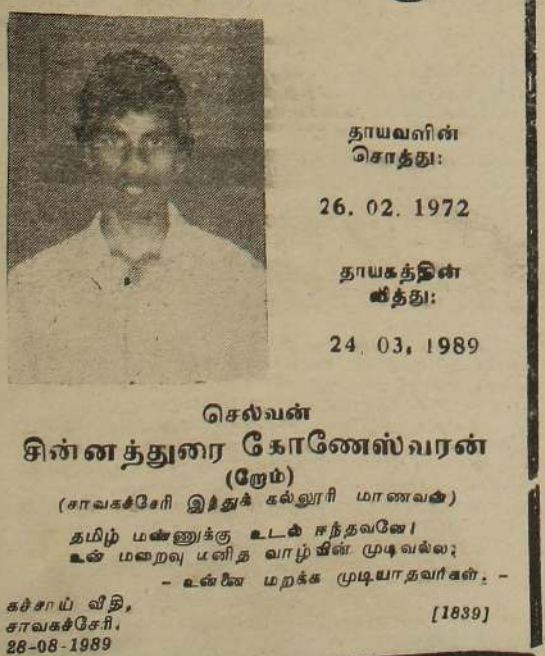 தாயவளின்
சொத்து:
26. 02. 1972
தாயகத்தின்
வித்து:
24. 03. 1989
செல்வன்
சின்னத்துரை கோணேஸ்வரன்
(றேம்)
(சாவகச்சேரி இந்துக் கல்லூரி மாணவன்)
தமிழ் மண்ணுக்கு உடல் ஈந்தவனே!
உன் மறைவு மனித வாழ்வின் முடிவல்ல;
- உன்னை மறக்க முடியாதவர்கள். -
கச்சாய் வீதி,
சாவகச்சேரி.
28-08-1989
[1839]